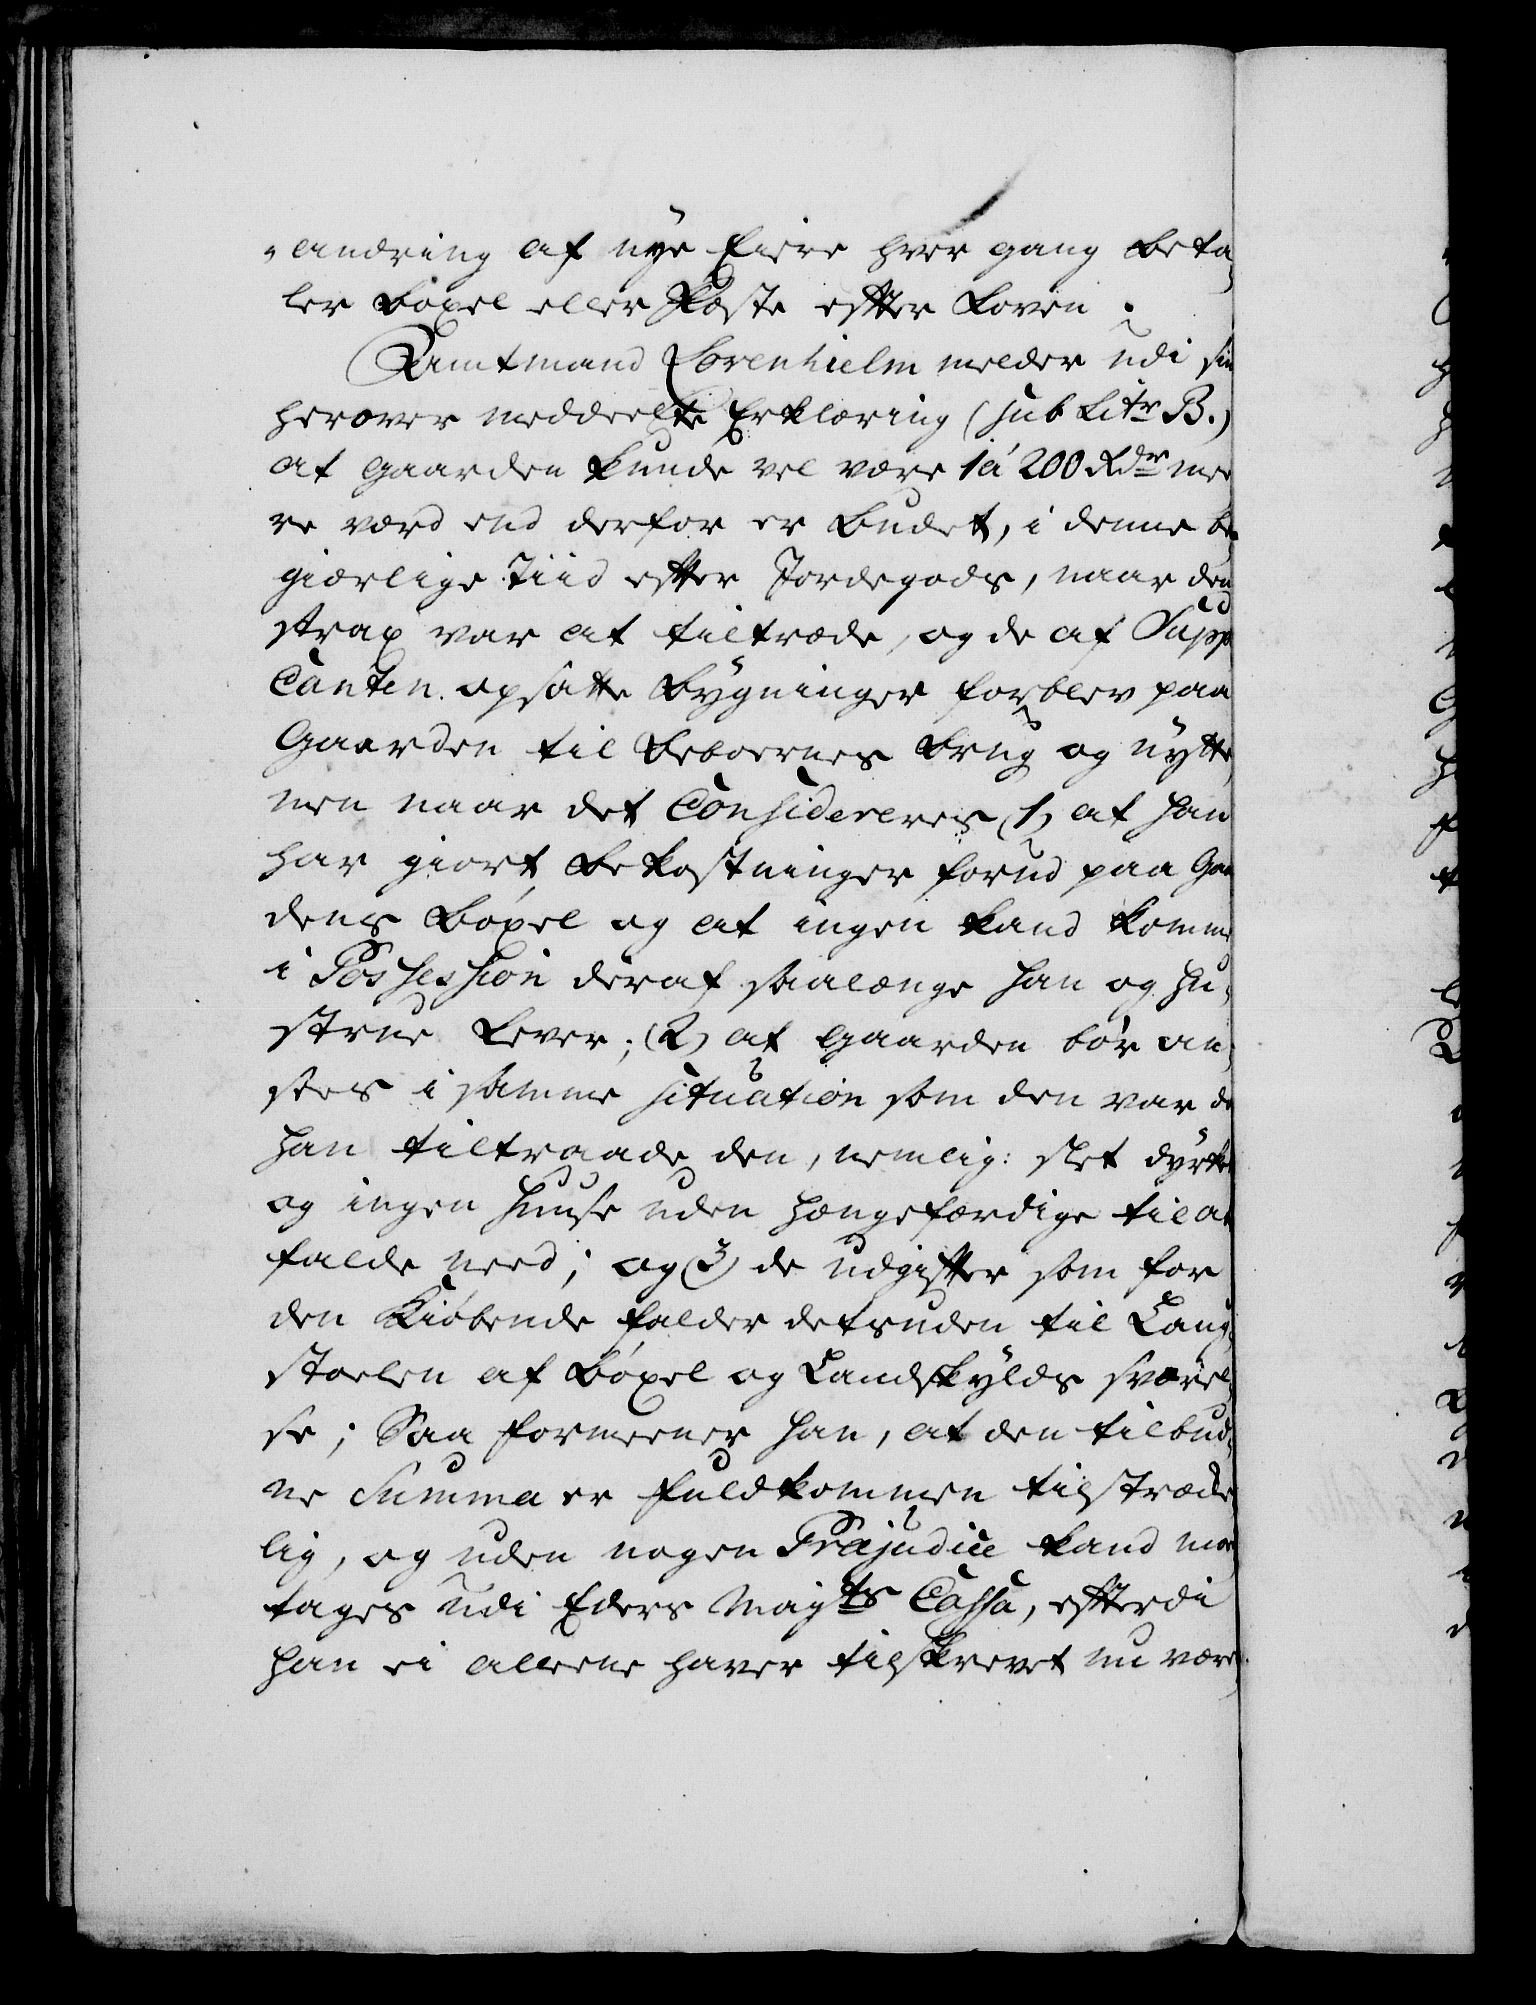 andring af nye Eiere hver gang beta-
ler Bøxel eller Fæste efter Loven.
Amtmand Sorenhielm melder udi sin
herover meddeelte Erklæring (sub Litr B.)
at Gaarden kunde vel være 1 á 200 Rdr mee
re værd end derfor er budet, i denne be-
giærlige Tiid efter Jordegods, naar den
strax var at tiltræde, og de af Supp
canten opsatte Bygninger forblev paa
Gaarden til Beboernes brug og nytte,
men naar det Considereres (1) at han
har giort bekostninger forud paa Gaar
dens Bøxel og at ingen kand komme
i Possession deraf saalænge han og Hu-
strue Lever; (2) at Gaarden bør an-
sees i samme situation som den var da
han tiltraade den, nemlig: slet dyrket
og ingen Huuse uden hængefærdige til at
falde need; og (3) de udgifter som for
den Kiøbende falder desuden til Laug-
stoelen af Bøxel og Landskylds svarel-
se; Saa formeener han, at den tilbud-
ne Summa er fuldkommen tilstrække
lig, og uden nogen Præjudice kand mod
tages udi Eders Mayts Cassa, efterdi
han ei alleene haver tilskrevet nu være